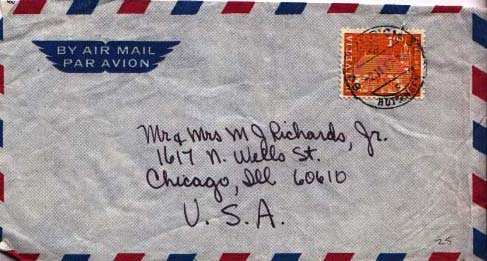 BY AIR MAIL
PAR AVION
HELVETIA
Mr & Mrs M J Richards, Jr.
1617 N. Wells St.
Chicago, Ill 60610
U. S. A.
25